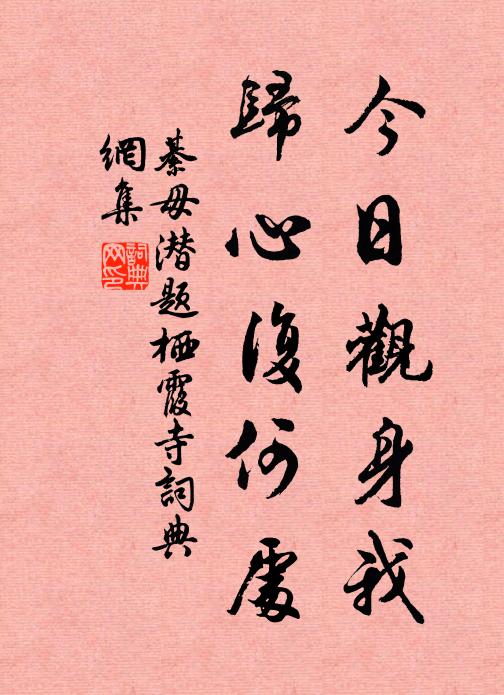 今日觀身我
歸心復何處
綦毋潜題栖霞寺詞典
網集
詞典
网印